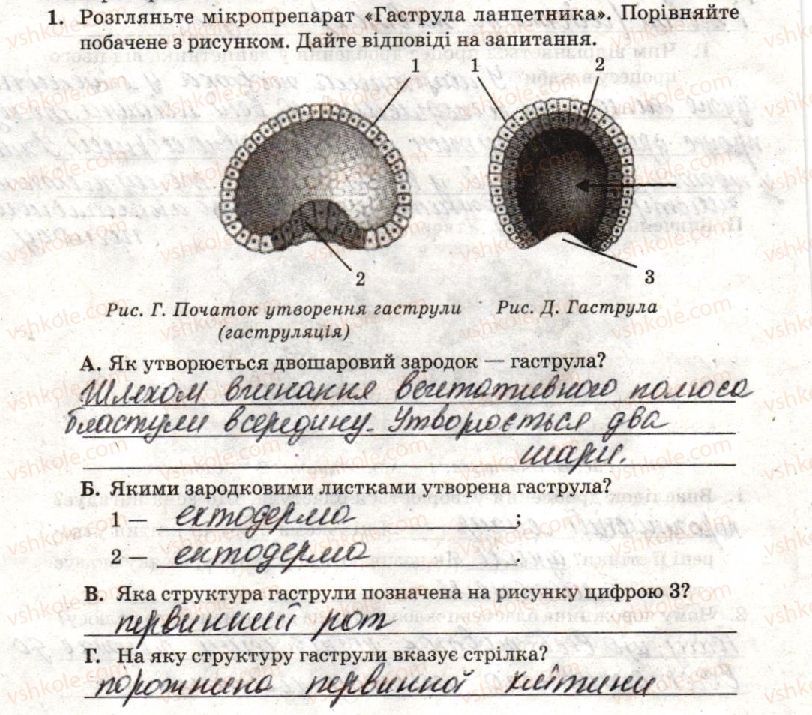 1. Розгляньте мікропрепарат «Гаструла ланцетника». Порівняйте
побачене з рисунком. Дайте відповіді на запитання.
1 1 2
2 3
Рис. Г. Початок утворення гаструли Рис. Д. Гаструла
(гаструляція)
А. Як утворюється двошаровий зародок — гаструла?
Шляхом вгинання вегетативного полюса
бластули всередину. Утворюється два
шари.
Б. Якими зародковими листками утворена гаструла?
1 — ектодерма ;
2 — ентодерма .
В. Яка структура гаструли позначена на рисунку цифрою 3?
первинний рот
Г. На яку структуру гаструли вказує стрілка?
порожнина первинної клітини